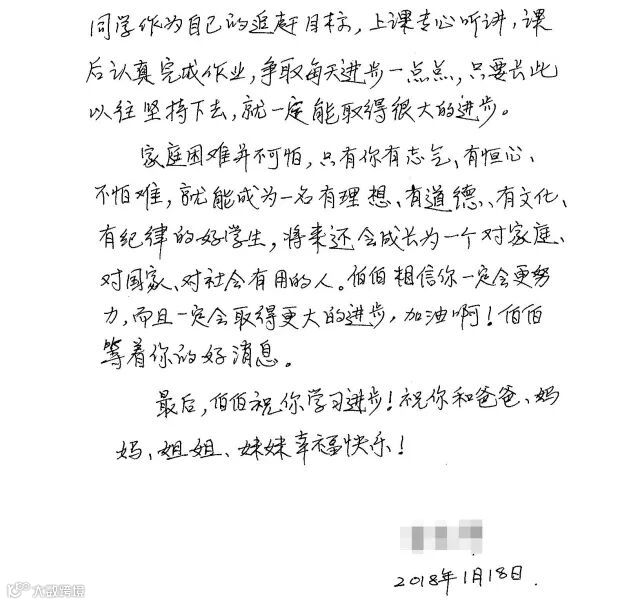 同学作为自己的追赶目标，上课专心听讲，课
后认真完成作业，争取每天进步一点点，只要长此
以往坚持下去，就一定能取得很大的进步。
家庭困难并不可怕，只有你有志气、有恒心、
不怕难，就能成为一名有理想、有道德、有文化、
有纪律的好学生，将来还会成长为一个对家庭、
对国家、对社会有用的人。伯伯相信你一定会更努
力，而且一定会取得更大的进步，加油啊！伯伯
等着你的好消息。
最后，伯伯祝你学习进步！祝你和爸爸、妈
妈、姐姐、妹妹幸福快乐！
2018年1月18日.
大数跨境